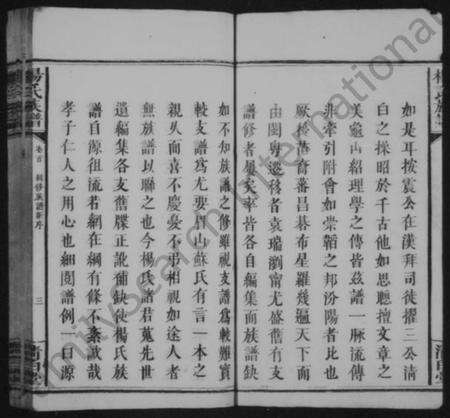 如是耳按震公在漢拜司徒擢三公清
白之操昭於千古他如思聰擅文章之
美龜山紹理學之傳皆茲譜一脈流傳
非牽引附會如崇韜之邦汾陽者比也
厥後苗裔番昌碁布星羅幾遍天下而
由閩粵遷移者袁瑞瀏甯尤盛舊有支
譜修者屢矣率皆各自編集而族譜缺
如不知族譜之修雖視支譜爲較難實
較支譜爲尤要眉山蘇氏有言一本之
親乆而喜不慶憂不弔相視如途人者
無族譜以聯之也今楊氏諸君蒐先世
遺編集各支舊牒正訛補缺使楊氏族
譜自源徂流若網在綱有條不紊誠哉
孝子仁人之用心也細閱譜例一曰源
楊氏族譜
卷首
三
清白堂
International